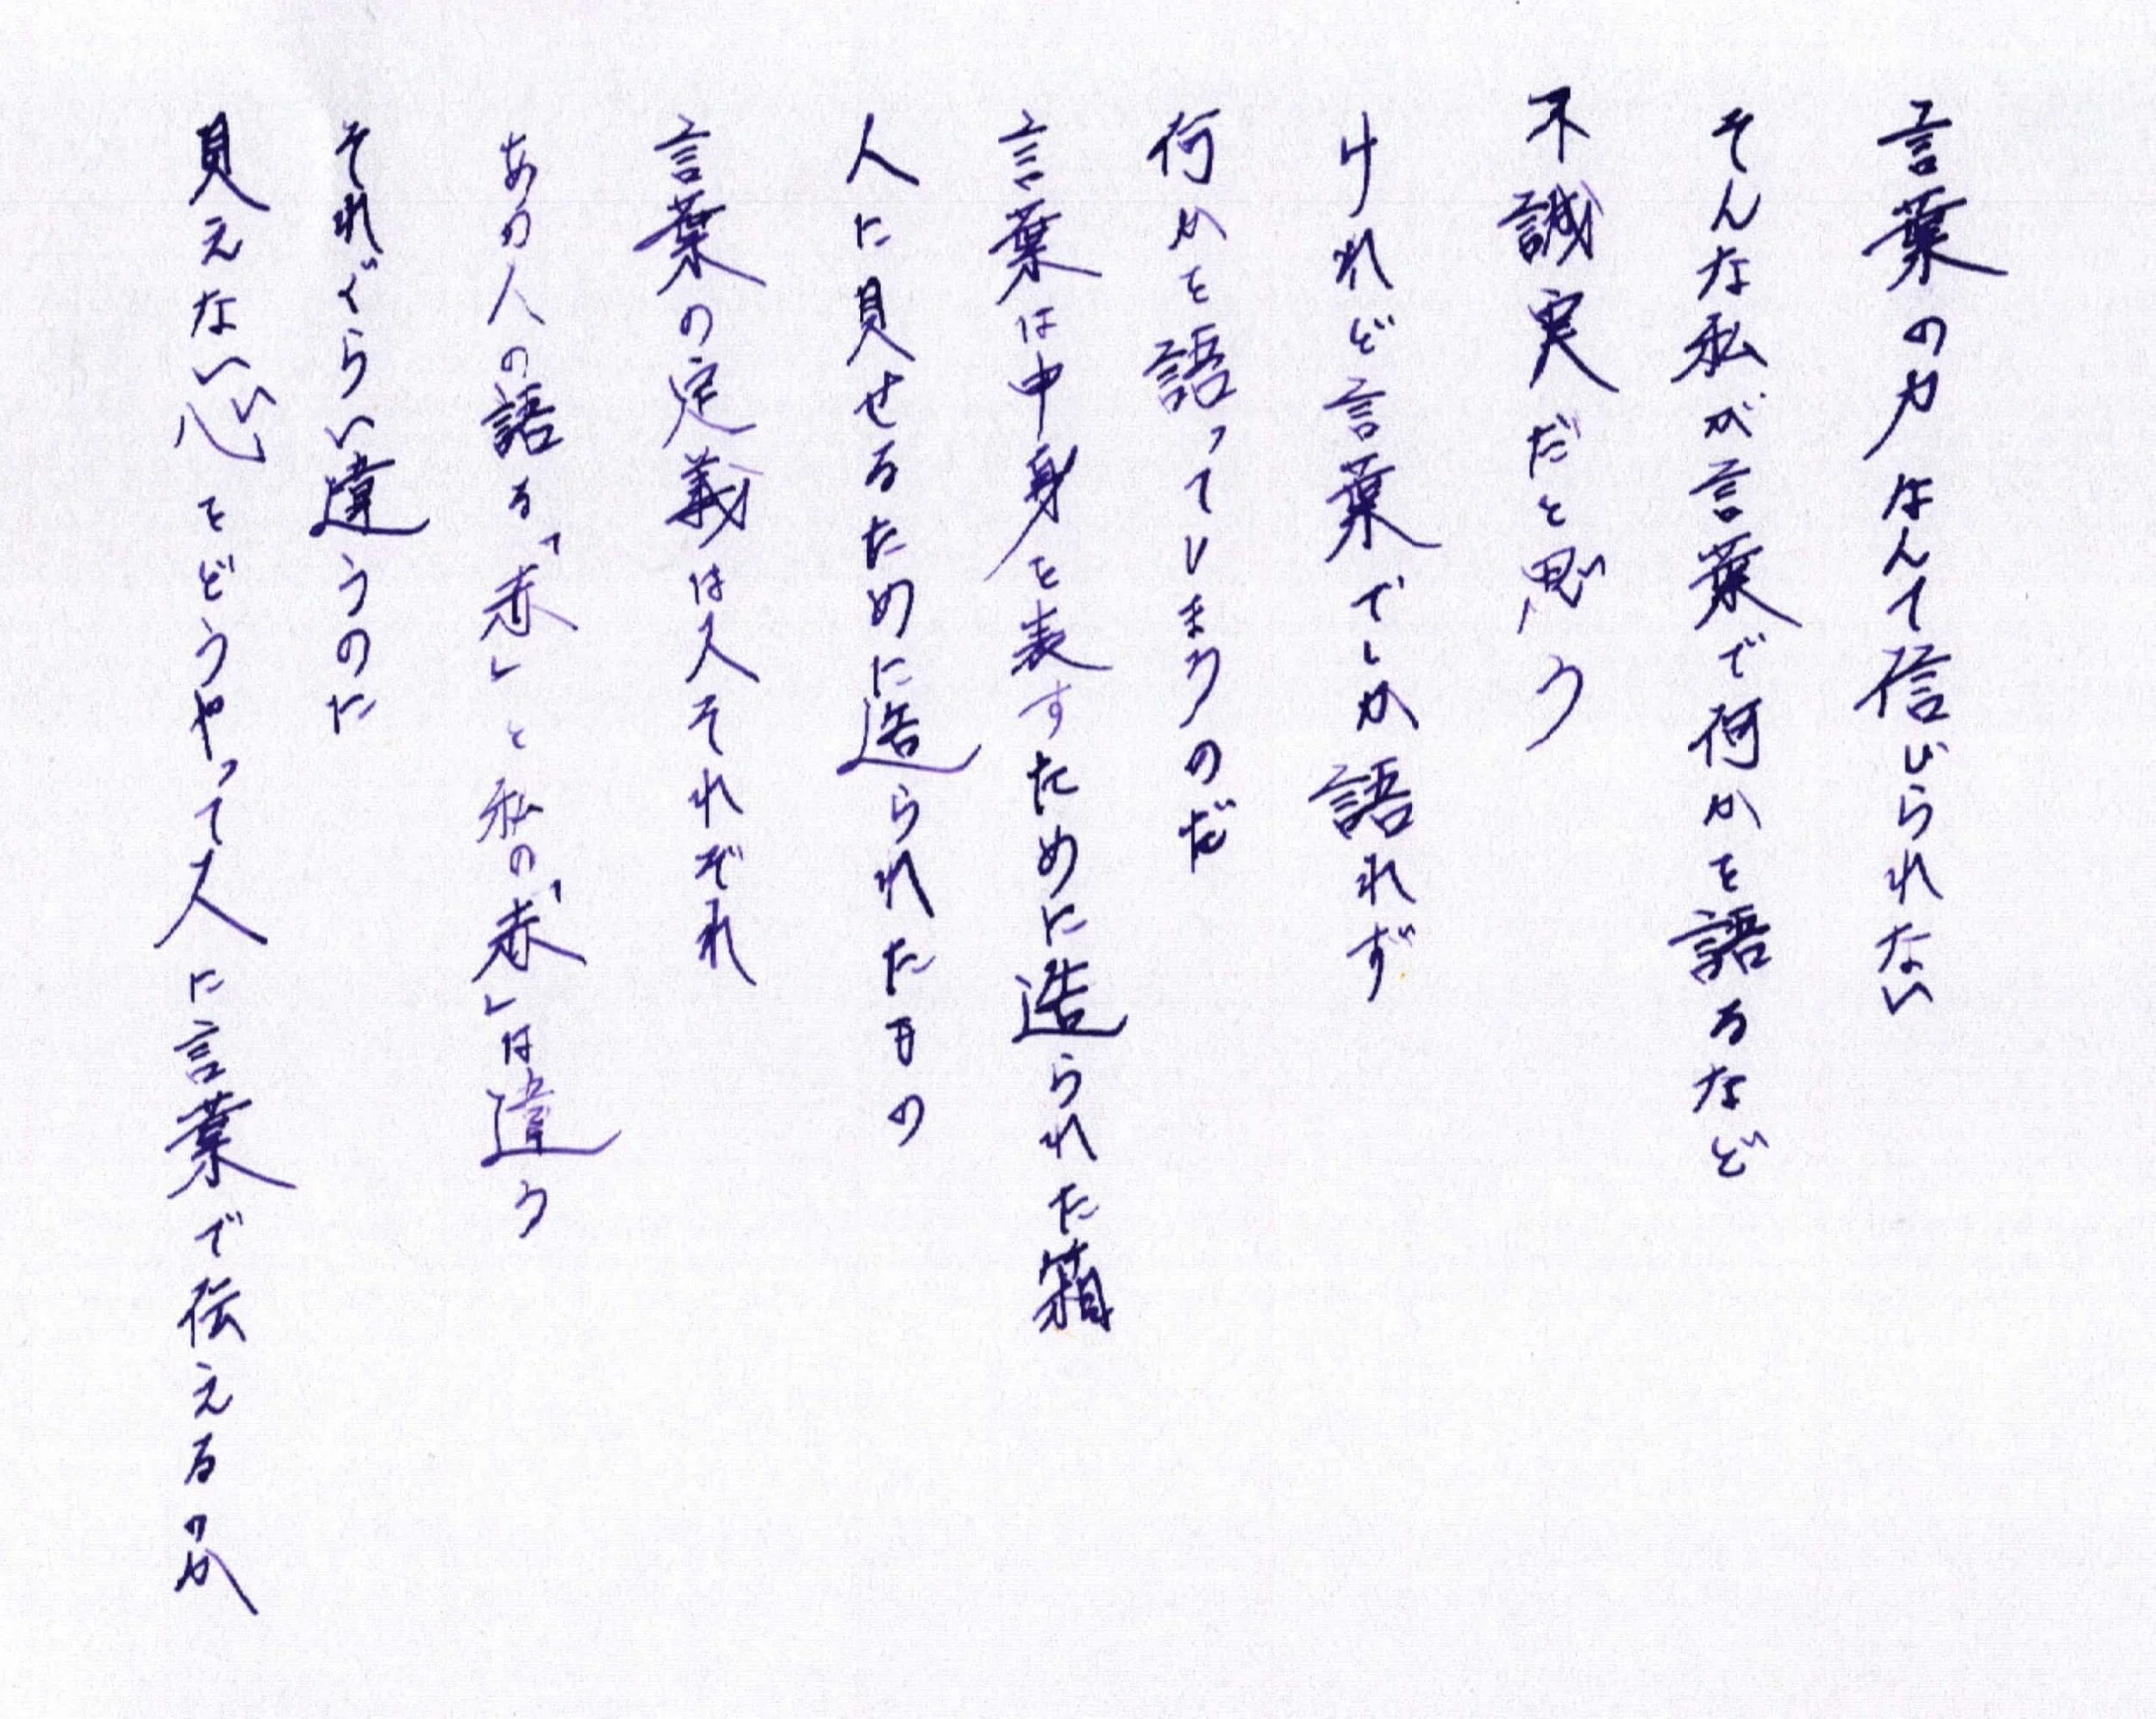 言葉の力なんて信じられない
そんな私が言葉で何かを語るなど
不誠実だと思う
けれど言葉でしか語れず
何かを語ってしまうのだ
言葉は中身を表すために造られた箱
人に見せるために造られたもの
言葉の定義は人それぞれ
あの人の語る「赤」と私の「赤」は違う
それぐらい違うのだ
見えない心をどうやって人に言葉で伝えるのか